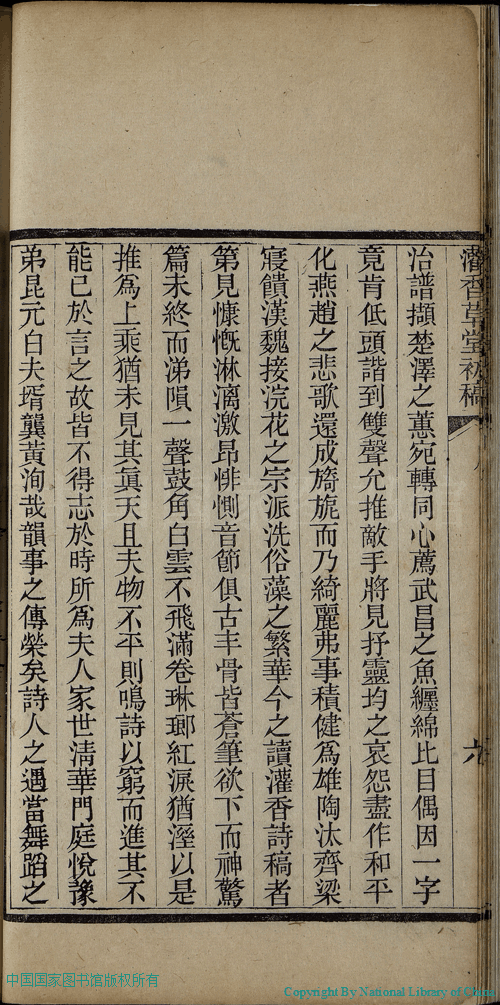 灌香草堂初稿
六
治譜擷楚澤之蕙宛轉同心薦武昌之魚纏綿比目偶因一字
竟肯低頭諧到雙聲允推敵手將見抒靈均之哀怨盡作和平
化燕趙之悲歌還成旖旎而乃綺麗弗事積健為雄陶汰齊梁
寢饋漢魏接浣花之宗派洗俗藻之繁華今之讀灌香詩稿者
第見慷慨淋漓激昂悱惻音節俱古丰骨皆蒼筆欲下而神驚
篇未終而涕隕一聲鼓角白雲不飛滿卷琳瑯紅淚猶溼以是
推為上乘猶未見其眞天且夫物不平則鳴詩以窮而進其不
能已於言之故皆不得志於時所為夫人家世淸華門庭悅豫
弟昆元白夫壻龔黃洵哉韻事之傳榮矣詩人之遇當舞蹈之
中国国家图书馆版权所有
Copyright By National Library of China